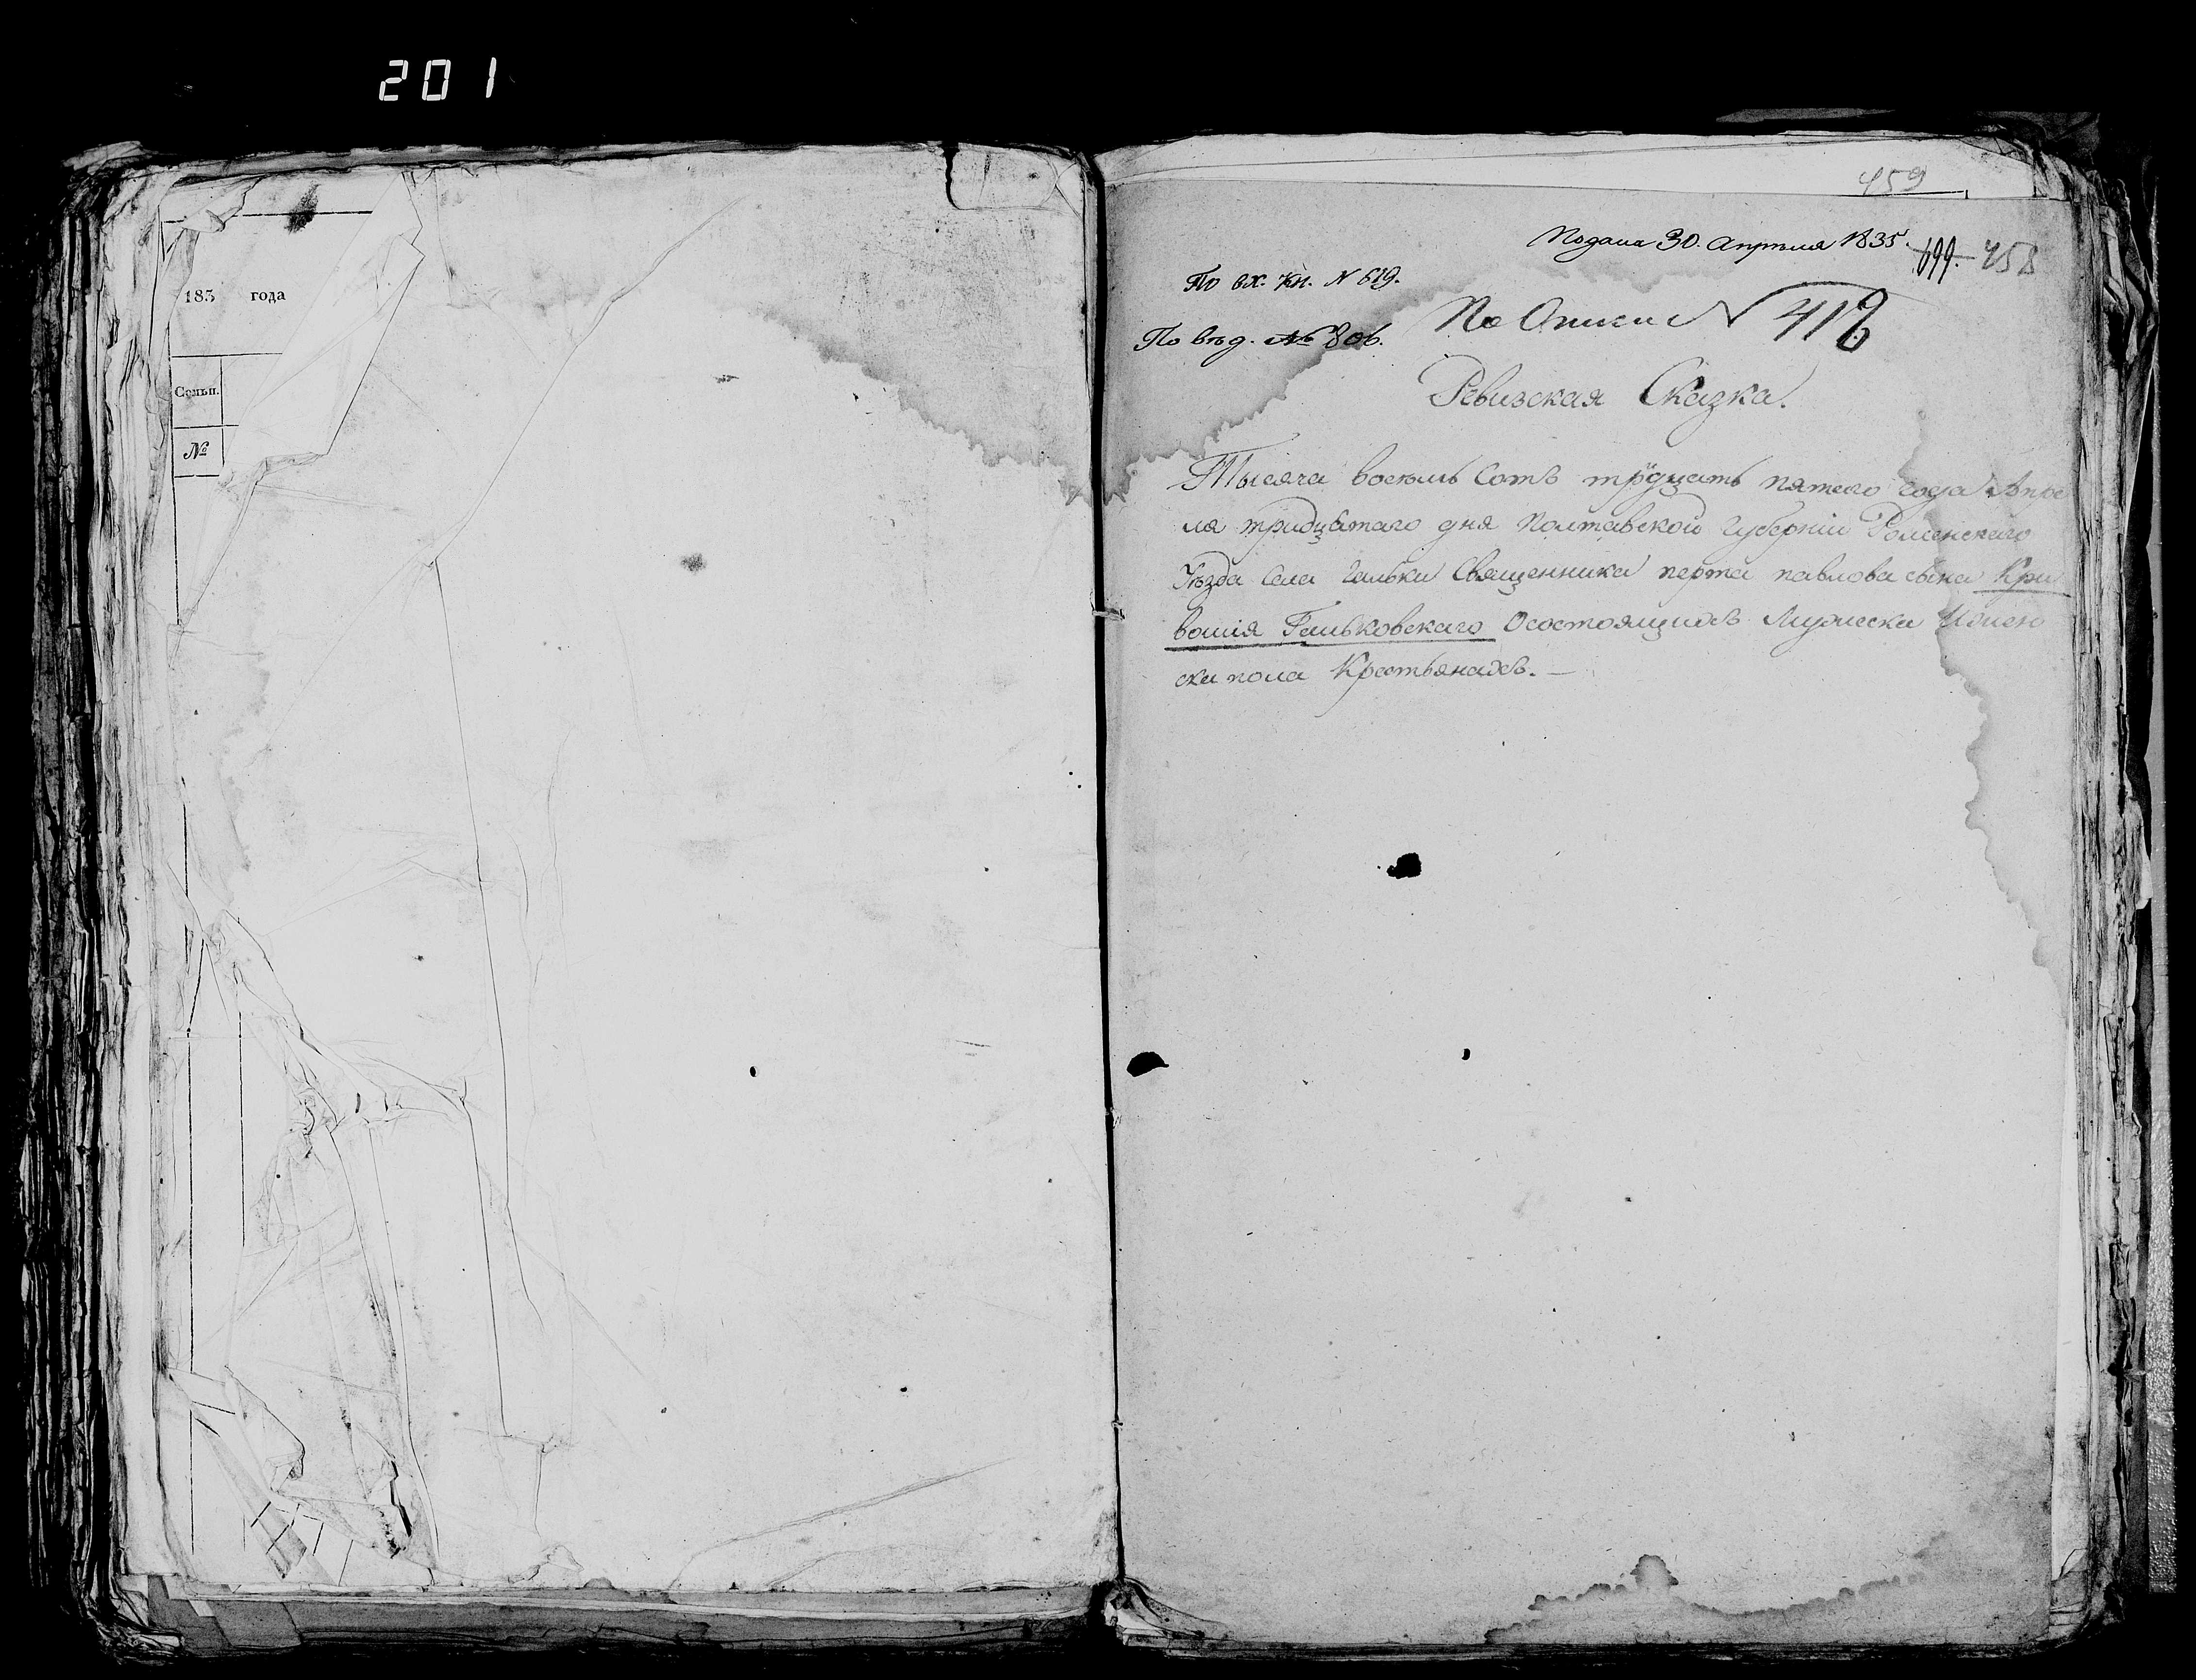 201
183 года
Семьи.
№
459
Подана 30. Апреля 1835.
699. 458
По вх. кн. N 619.
По Описи N 418
По вѣд. № 806.
Ревизская Сказка.
Тысяча восемь Сотъ тридцать пятого года Апре
ля тридцатаго дня Полтавской Губерніи Роменского
Уѣзда Села Гальки Священника петра павлова сына Кри
вошія Гальковскаго Осостоящихъ Мужеска Ижен
ска пола Крестьянахъ. —